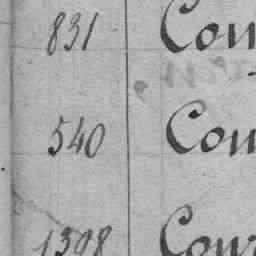 831 Cou
540 Cou
1398 Cour